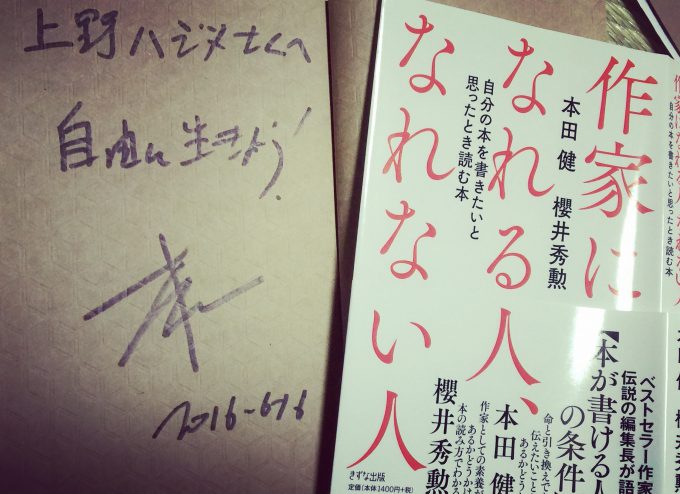 上野ハジメさんへ
自由に生きよう!
健
2016-6.16
作家に
なれる人、
なれない人
本田 健 櫻井秀勲
自分の本を書きたいと
思ったとき読む本
ベストセラー作家
伝説の編集長が語
【本が書ける人
の条件
命と引き換えで
伝えたいこと
あるかどう
本田 健
作家としての素養が
あるかどうかは
本の読み方でわかる
櫻井秀勲
きずな出版
定価(本体1400円+税)
自分の本を書きたいと思ったとき読む本